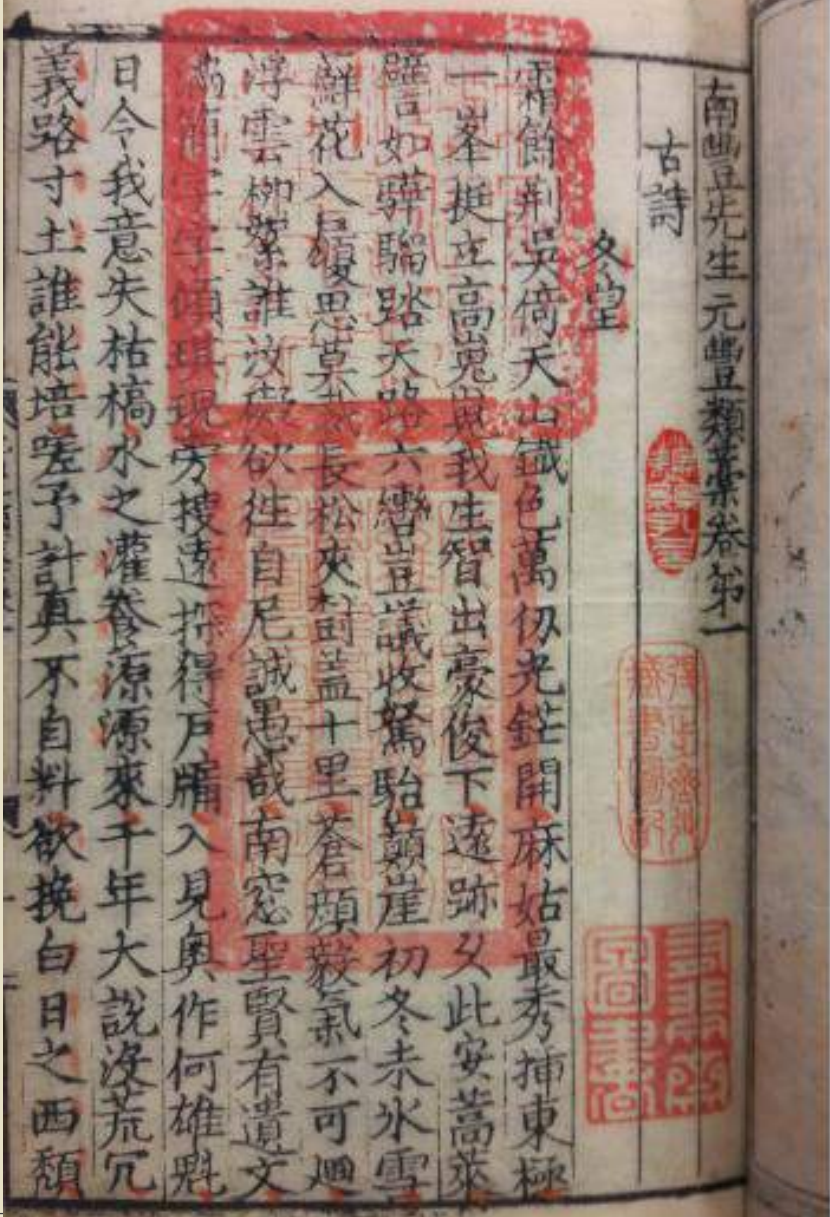 南豐先生元豐類藁卷第一
古詩
冬望
霜餘荆吳倚天山鐵色萬仞光鋩開麻姑最秀插東極
一峯挺立高嵬嵬我生智出豪俊下遠跡久此安蒿萊
譬如驊騮踏天路六轡豈議收駑駘巔崖初冬未氷雪
蘚花入履思莫裁長松夾樹蓋十里蒼顔毅氣不可廻
浮雲柳絮誰汝礙欲往自尼誠愚哉南窓聖賢有遺文
滿簡字字傾琪瑰旁搜遠探得戶牖入見奥作何雄魁
日令我意失枯槁水之灌養源源來千年大說沒荒冗
義路寸土誰能培嗟予計真不自料欲挽白日之西頹